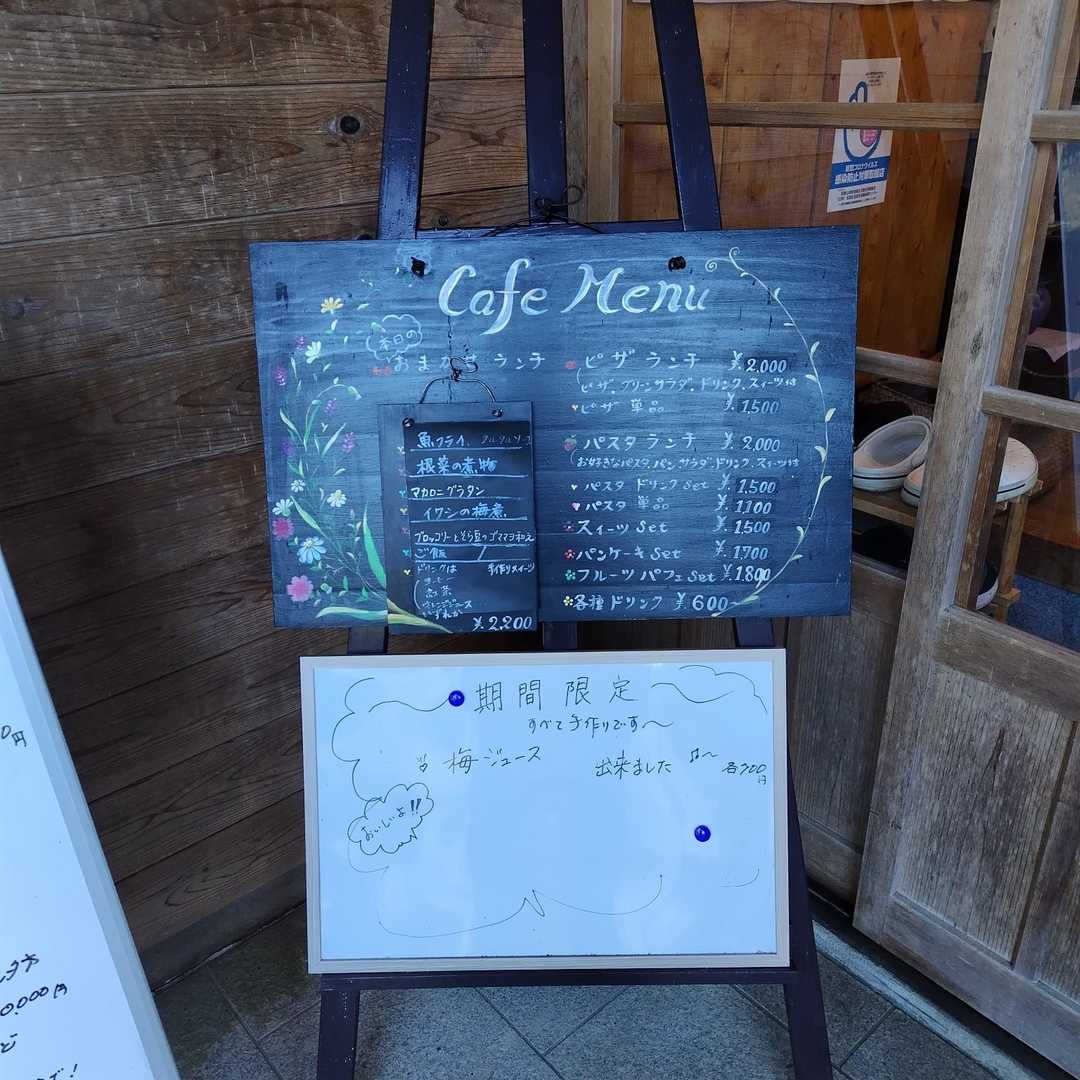 Cafe Menu
本日の
おまかせ ランチ
魚フライ、タルタルソース
根菜の煮物
マカロニグラタン
イワシの梅煮
ブロッコリーとそら豆のゴママヨ和え
ご飯
ドリンクは 手作りスイーツ
コーヒー
紅茶
オレンジジュース
いずれか
¥2,200
ピザ ランチ ¥2,000
(ピザ、グリーンサラダ、ドリンク、スイーツ付
ピザ 単品 ¥1,500
パスタ ランチ ¥2,000
(お好きなパスタ、パン、サラダ、ドリンク、スイーツ付
パスタ ドリンクset ¥1,500
パスタ 単品 ¥1,100
スイーツ set ¥1,500
パンケーキ set ¥1,700
フルーツ パフェ set ¥1,800
各種 ドリンク ¥600~
期間限定
すべて手作りです〜
梅ジュース 出来ました 〜 各700円
おいしいよ!!
新型コロナウイルス
感染防止対策取組店
0円
0,000円
ど